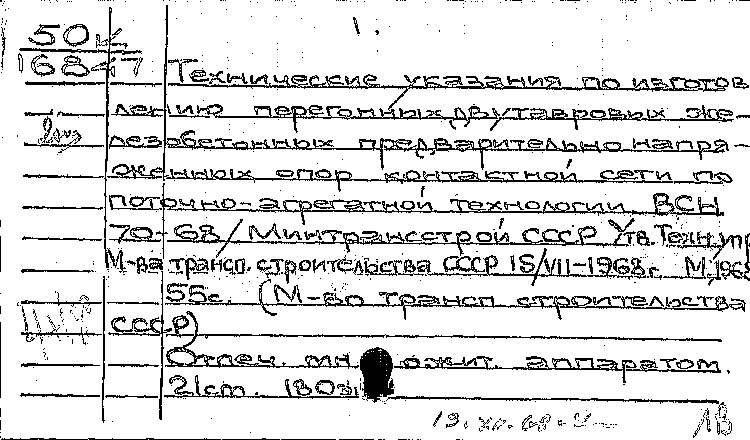 1.
50к
16847
Технические указания по изготов
лению перегонных двутавровых же-
лезобетонных предварительно напря-
женных опор контактной сети по
поточно-агрегатной технологии ВСН
70-68/Минтрансстрой СССР Утв. Техн.упр
М-ва трансп. строительства СССР 15/VII-1968г. М, 1968
55с. (М-во трансп строительства
СССР).
Отпеч. множит. аппаратом.
21cm. 180э
19. XII. 68.
ЛВ